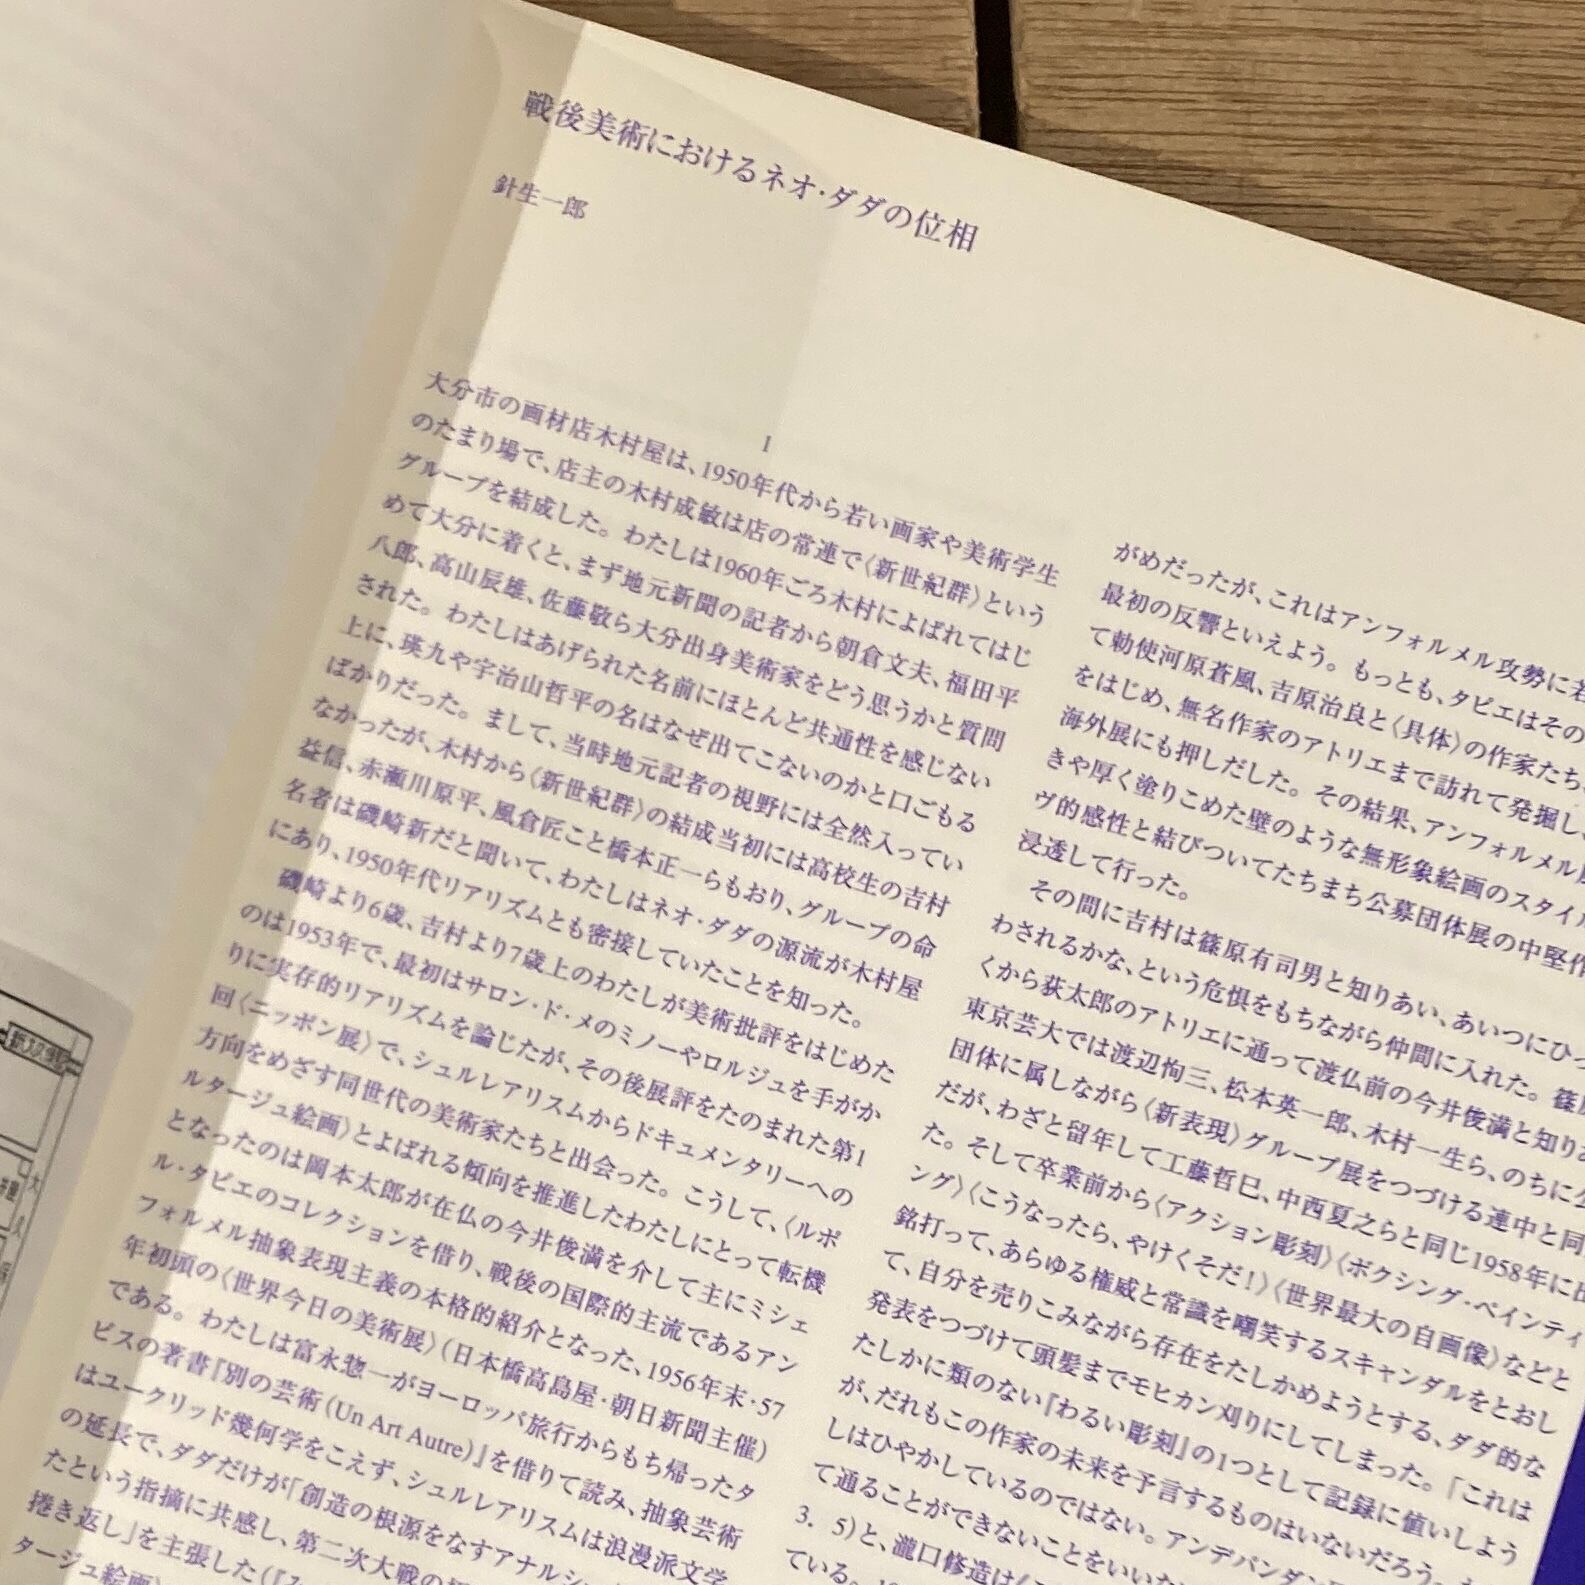 戦後美術におけるネオ・ダダの位相
針生一郎
I
大分市の画材店木村屋は、1950年代から若い画家や美術学生
のたまり場で、店主の木村成敏は店の常連で〈新世紀群〉という
グループを結成した。わたしは1960年ごろ木村によばれてはじ
めて大分に着くと、まず地元新聞の記者から朝倉文夫、福田平
八郎、高山辰雄、佐藤敬ら大分出身美術家をどう思うかと質問
された。わたしはあげられた名前にほとんど共通性を感じない
上に、瑛九や宇治山哲平の名はなぜ出てこないのかと口ごもる
ばかりだった。まして、当時地元記者の視野には全然入ってい
なかったが、木村から〈新世紀群〉の結成当初には高校生の吉村
益信、赤瀬川原平、風倉匠こと橋本正一らもおり、グループの命
名者は磯崎新だと聞いて、わたしはネオ・ダダの源流が木村屋
にあり、1950年代リアリズムとも密接していたことを知った。
磯崎より6歳、吉村より7歳上のわたしが美術批評をはじめた
のは1953年で、最初はサロン・ド・メのミノーやロルジュを手がか
りに実存的リアリズムを論じたが、その後展評をたのまれた第1
回〈ニッポン展〉で、シュルレアリスムからドキュメンタリーへの
方向をめざす同世代の美術家たちと出会った。こうして、〈ルポ
ルタージュ絵画〉とよばれる傾向を推進したわたしにとって転機
となったのは岡本太郎が在仏の今井俊満を介して主にミシェ
ル・タピエのコレクションを借り、戦後の国際的主流であるアン
フォルメル抽象表現主義の本格的紹介となった、1956年末・57
年初頭の〈世界今日の美術展〉（日本橋高島屋・朝日新聞主催）
である。わたしは富永惣一がヨーロッパ旅行からもち帰ったタ
ピスの著書『別の芸術（Un Art Autre）』を借りて読み、抽象芸術
はユークリッド幾何学をこえず、シュルレアリスムは浪漫派文学
の延長で、ダダだけが「創造の根源をなすアナルシ
たという指摘に共感し、第二次大戦の
捲き返し」を主張した（『み
タージュ絵画〉
がめだったが、これはアンフォルメル攻勢に若
最初の反響といえよう。もっとも、タピエはその
て勅使河原蒼風、吉原治良と〈具体〉の作家たち
をはじめ、無名作家のアトリエまで訪れて発掘し
海外展にも押しだした。その結果、アンフォルメル
きや厚く塗りこめた壁のような無形象絵画のスタイル
ヴ的感性と結びついてたちまち公募団体展の中堅作
浸透して行った。
その間に吉村は篠原有司男と知りあい、あいつにひっ
わされるかな、という危惧をもちながら仲間に入れた。篠原
くから荻太郎のアトリエに通って渡仏前の今井俊満と知りあ
東京芸大では渡辺恂三、松本英一郎、木村一生ら、のちに公
団体に属しながら〈新表現〉グループ展をつづける連中と同
だが、わざと留年して工藤哲巳、中西夏之らと同じ1958年に出
た。そして卒業前から〈アクション彫刻〉〈ボクシング・ペインティ
ング〉〈こうなったら、やけくそだ！〉〈世界最大の自画像〉などと
銘打って、あらゆる権威と常識を嘲笑するスキャンダルをとおし
て、自分を売りこみながら存在をたしかめようとする、ダダ的な
発表をつづけて頭髪までモヒカン刈りにしてしまった。「これは
たしかに類のない『わるい彫刻』の1つとして記録に値いしよう
が、だれもこの作家の未来を予言するものはいないだろう。
しはひやかしているのではない。アンデパンダン
て通ることができないことをいい
3．5）と、瀧口修造は
ている。